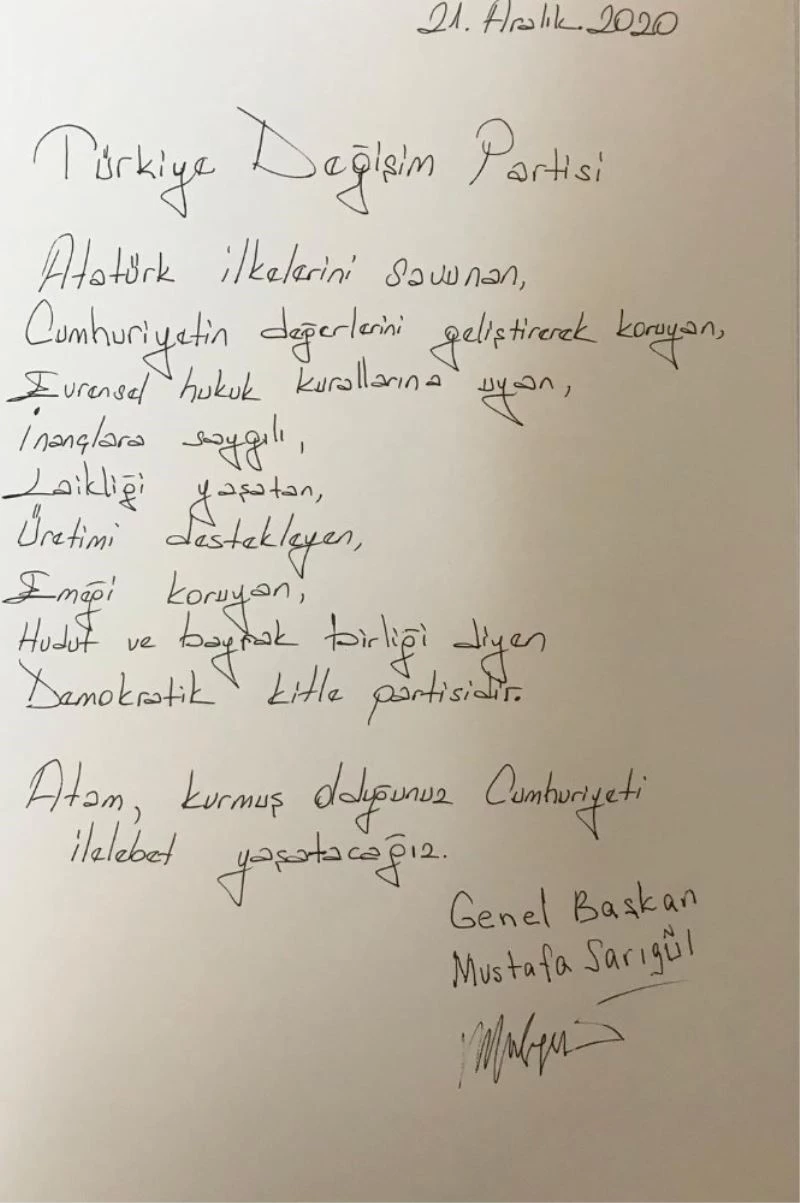 21. Aralık 2020
Türkiye Değişim Partisi
Atatürk ilkelerini savunan,
Cumhuriyetin değerlerini geliştirerek koruyan,
Evrensel hukuk kurallarına uyan,
İnançlara saygılı,
Laikliği yaşatan,
Üretimi destekleyen,
Emeği koruyan,
Hudut ve bayrak birliği diyen
Demokratik kitle partisidir.
Atam, kurmuş olduğunuz Cumhuriyeti
ilelebet yaşatacağız.
Genel Başkan
Mustafa Sarıgül